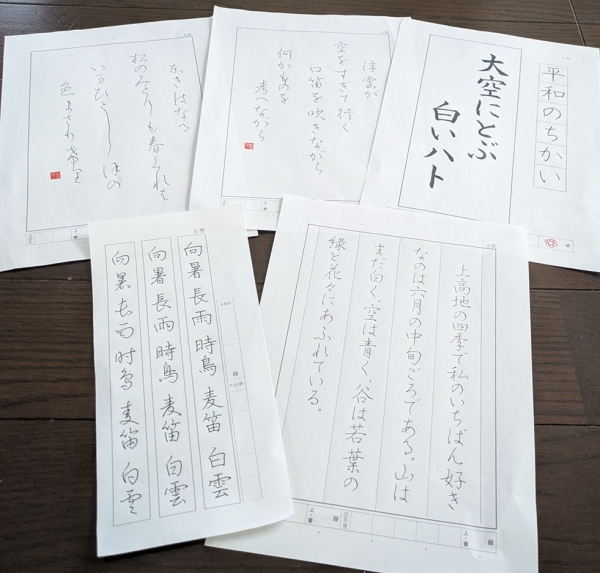 平和のちかい
大空にとぶ
白いハト
浮雲が
空をすぎて行く
口笛を吹きながら
何かものを
考へながら
ときはなる
松のみどりも春くれは
いまひとしほの
色まさり希里
上高地の四季で私のいちばん好き
なのは六月の中旬ごろである。山は
まだ白く、空は青く、谷は若葉の
緑と花々にあふれている。
向暑 長雨 時鳥 麦笛 白雲
向暑 長雨 時鳥 麦笛 白雲
向暑 長雨 時鳥 麦笛 白雲